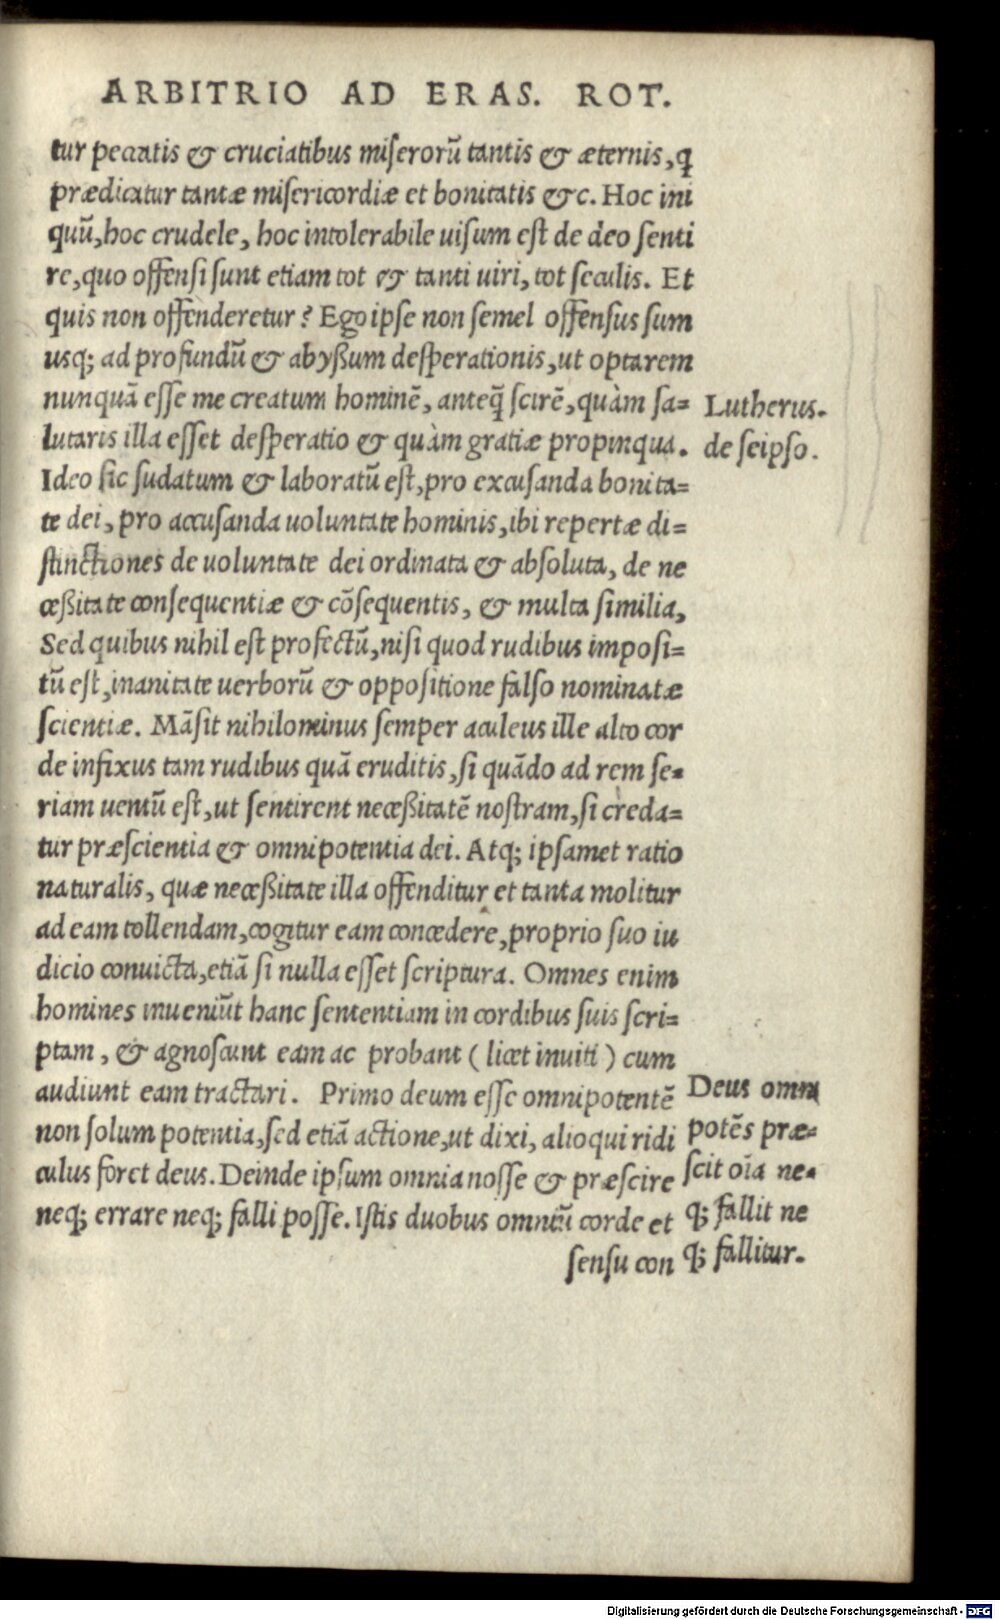 ARBITRIO AD ERAS. ROT.
tur peccatis & cruciatibus miſerorũ tantis & æternis, q
prædicatur tantæ miſericordiæ et bonitatis &c. Hoc ini
quũ, hoc crudele, hoc intolerabile uiſum eſt de deo ſenti
re, quo offenſi ſunt etiam tot & tanti uiri, tot ſeculis. Et
quis non offenderetur? Ego ipſe non ſemel offenſus ſum
uſq; ad profundũ & abyßum deſperationis, ut optarem
nunquã eſſe me creatum hominẽ, anteq̃ ſcirẽ, quàm ſa=
lutaris illa eſſet deſperatio & quàm gratiæ propinqua.
Lutherus.
de ſeipſo.
Ideo ſic ſudatum & laboratũ eſt, pro excuſanda bonita=
te dei, pro accuſanda uoluntate hominis, ibi repertæ di=
ſtinctiones de uoluntate dei ordinata & abſoluta, de ne
ceßitate conſequentiæ & cõſequentis, & multa ſimilia,
Sed quibus nihil eſt profectũ, niſi quod rudibus impoſi=
tũ eſt, inanitate uerborũ & oppoſitione falſo nominatæ
ſcientiæ. Mãſit nihilominus ſemper aculeus ille alto cor
de infixus tam rudibus quã eruditis, ſi quãdo ad rem ſe=
riam uentũ eſt, ut ſentirent neceßitatẽ noſtram, ſi creda=
tur præſcientia & omnipotentia dei. Atq; ipſamet ratio
naturalis, quæ neceßitate illa offenditur et tanta molitur
ad eam tollendam, cogitur eam concedere, proprio ſuo iu
dicio conuicta, etiã ſi nulla eſſet ſcriptura. Omnes enim
homines inueniũt hanc ſententiam in cordibus ſuis ſcri=
ptam, & agnoſcunt eam ac probant (licet inuiti) cum
audiunt eam tractari. Primo deum eſſe omnipotentẽ
non ſolum potentia, ſed etiã actione, ut dixi, alioqui ridi
culus foret deus. Deinde ipſum omnia noſſe & præſcire
neq; errare neq; falli poſſe. Iſtis duobus omniũ corde et
ſenſu con
Deus omni
potẽs præ=
ſcit oĩa ne=
q; fallit ne
q; fallitur.
Digitalisierung gefördert durch die Deutsche Forschungsgemeinschaft - DFG